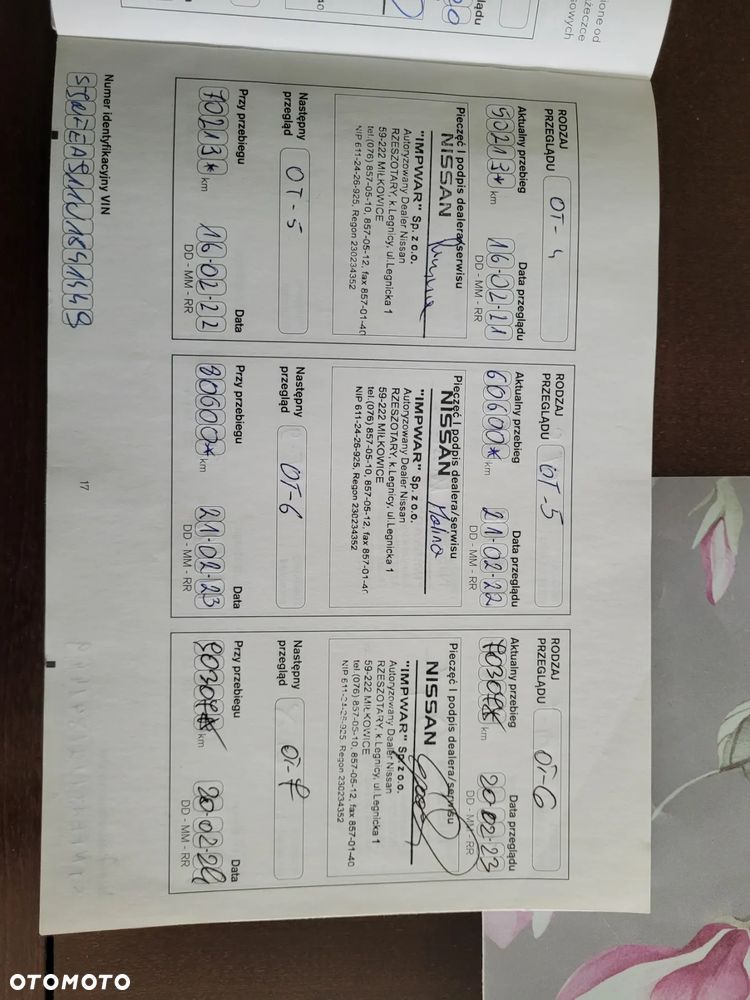 RODZAJ PRZEGLĄDU OT-4
Aktualny przebieg Data przeglądu
50213* km 16-02-21
DD - MM - RR
Pieczęć i podpis dealera/serwisu
NISSAN
"IMPWAR" Sp. z o.o.
Autoryzowany Dealer Nissan
RZESZOTARY, k.Legnicy, ul.Legnicka 1
59-222 MIŁKOWICE
tel.(076) 857-05-10, 857-05-12, fax 857-01-40
NIP 611-24-26-925, Regon 230234352
Następny przegląd OT-5
Przy przebiegu Data
70213* km 16-02-22
DD - MM - RR
Numer identyfikacyjny VIN
RODZAJ PRZEGLĄDU OT-5
Aktualny przebieg Data przeglądu
60600* km 21-02-22
DD - MM - RR
Pieczęć i podpis dealera/serwisu
NISSAN Malina
"IMPWAR" Sp. z o.o.
Autoryzowany Dealer Nissan
RZESZOTARY, k.Legnicy, ul.Legnicka 1
59-222 MIŁKOWICE
tel.(076) 857-05-10, 857-05-12, fax 857-01-40
NIP 611-24-26-925, Regon 230234352
Następny przegląd OT-6
Przy przebiegu Data
80600* km 21-02-23
DD - MM - RR
17
RODZAJ PRZEGLĄDU OT-6
Aktualny przebieg Data przeglądu
km 20-02-23
DD - MM - RR
Pieczęć i podpis dealera/serwisu
NISSAN
"IMPWAR" Sp. z o.o.
Autoryzowany Dealer Nissan
RZESZOTARY, k.Legnicy, ul.Legnicka 1
59-222 MIŁKOWICE
tel.(076) 857-05-10, 857-05-12, fax 857-01-40
NIP 611-24-26-925, Regon 230234352
Następny przegląd OT-7
Przy przebiegu Data
km 20-02-24
DD - MM - RR
OTOMOTO